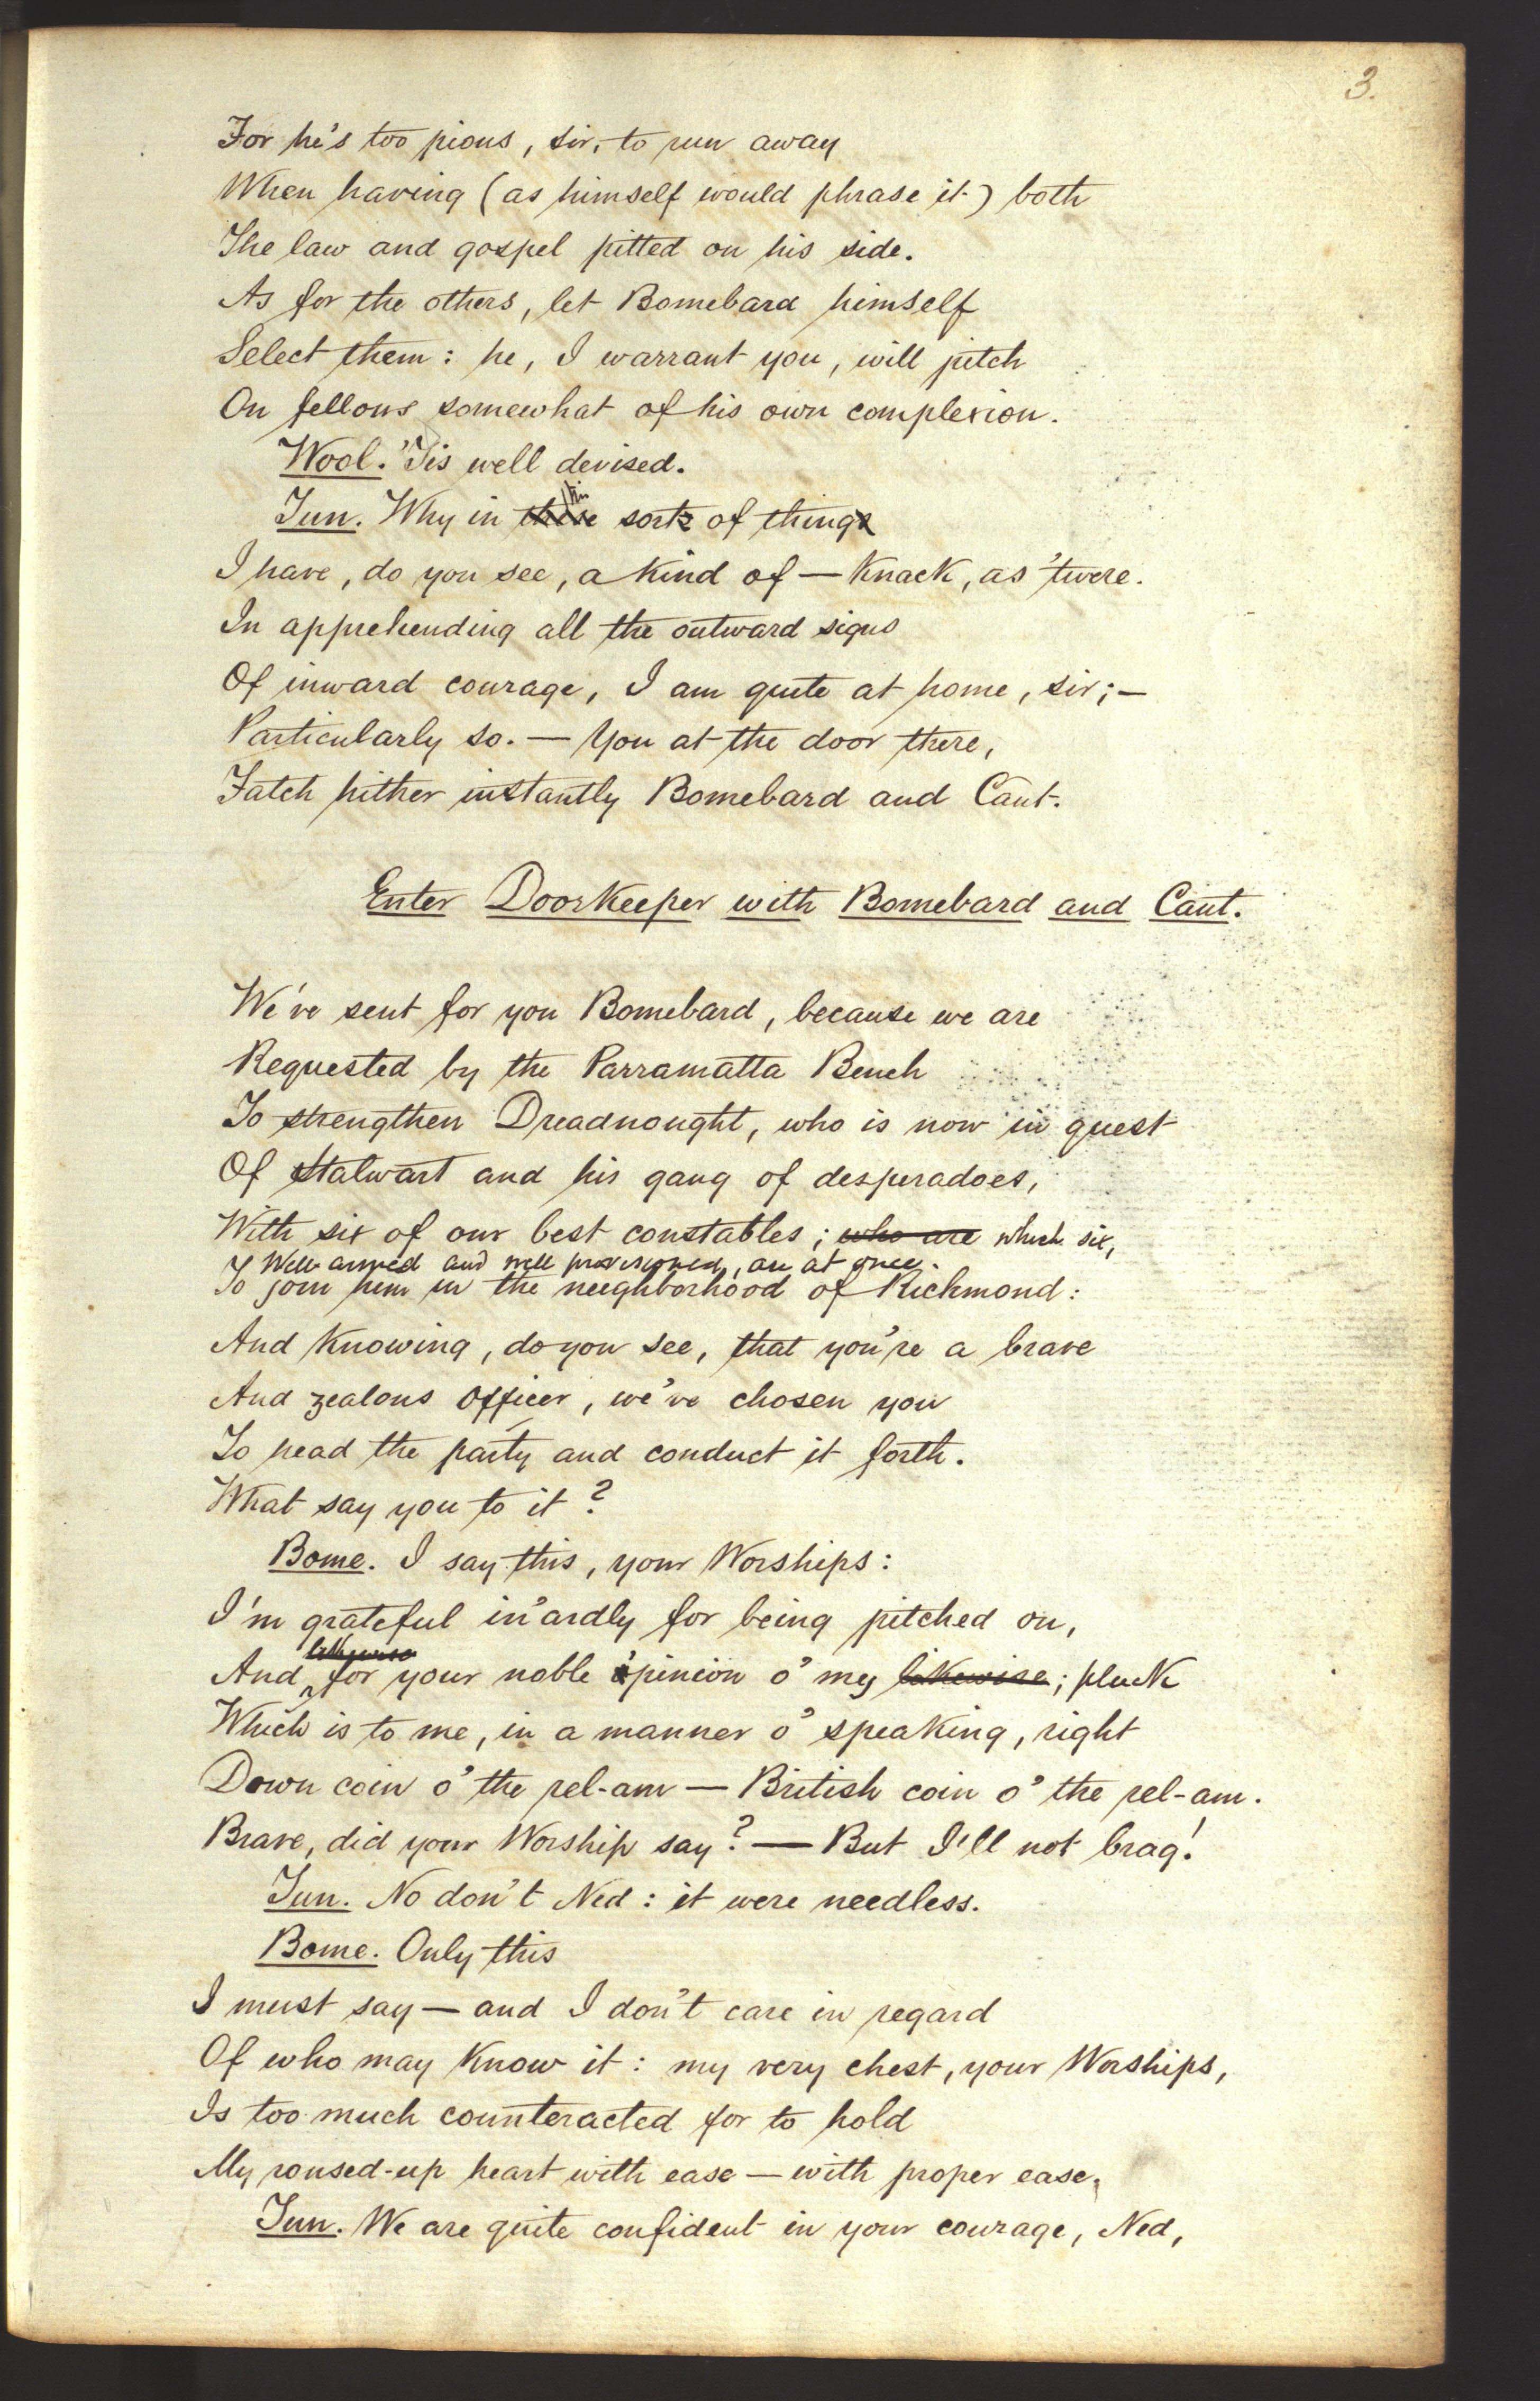 3.
For he's too pious, sir, to run away
When having (as himself would phrase it) both
The law and gospel pitted on his side.
As for the others, let Bomebard himself
Select them: he, I warrant you, will pitch
On fellows somewhat of his own complexion.
Wool. 'Tis well devised.
Jun. Why in these this sorts of things
I have, do you see, a kind of — knack, as 'twere.
In apprehending all the outward signs
Of inward courage, I am quite at home, sir; —
Particularly so. — You at the door there,
Fatch hither instantly Bomebard and Cant.
Enter Doorkeeper with Bomebard and Cant.
We've sent for you Bomebard, because we are
Requested by the Parramatta Bench
To strengthen Dreadnought, who is now in quest
Of Stalwart and his gang of desperadoes,
With six of our best constables; who are which six,
Well armed and well provisioned, are at once
To join him in the neighborhood of Richmond:
And knowing, do you see, that you're a brave
And zealous officer, we've chosen you
To head the party and conduct it forth.
What say you to it?
Bome. I say this, your Worships:
I'm grateful in'ardly for being pitched on,
likewise
And for your noble 'pinion o' my likewise; pluck
Which is to me, in a manner o' speaking, right
Down coin o' the rel-am — British coin o' the rel-am.
Brave, did your Worship say? — But I'll not brag!
Jun. No don't Ned: it were needless.
Bome. Only this
I must say — and I don't care in regard
Of who may know it: my very chest, your Worships,
Is too much counteracted for to hold
My roused-up heart with ease — with proper ease.
Jun. We are quite confident in your courage, Ned,